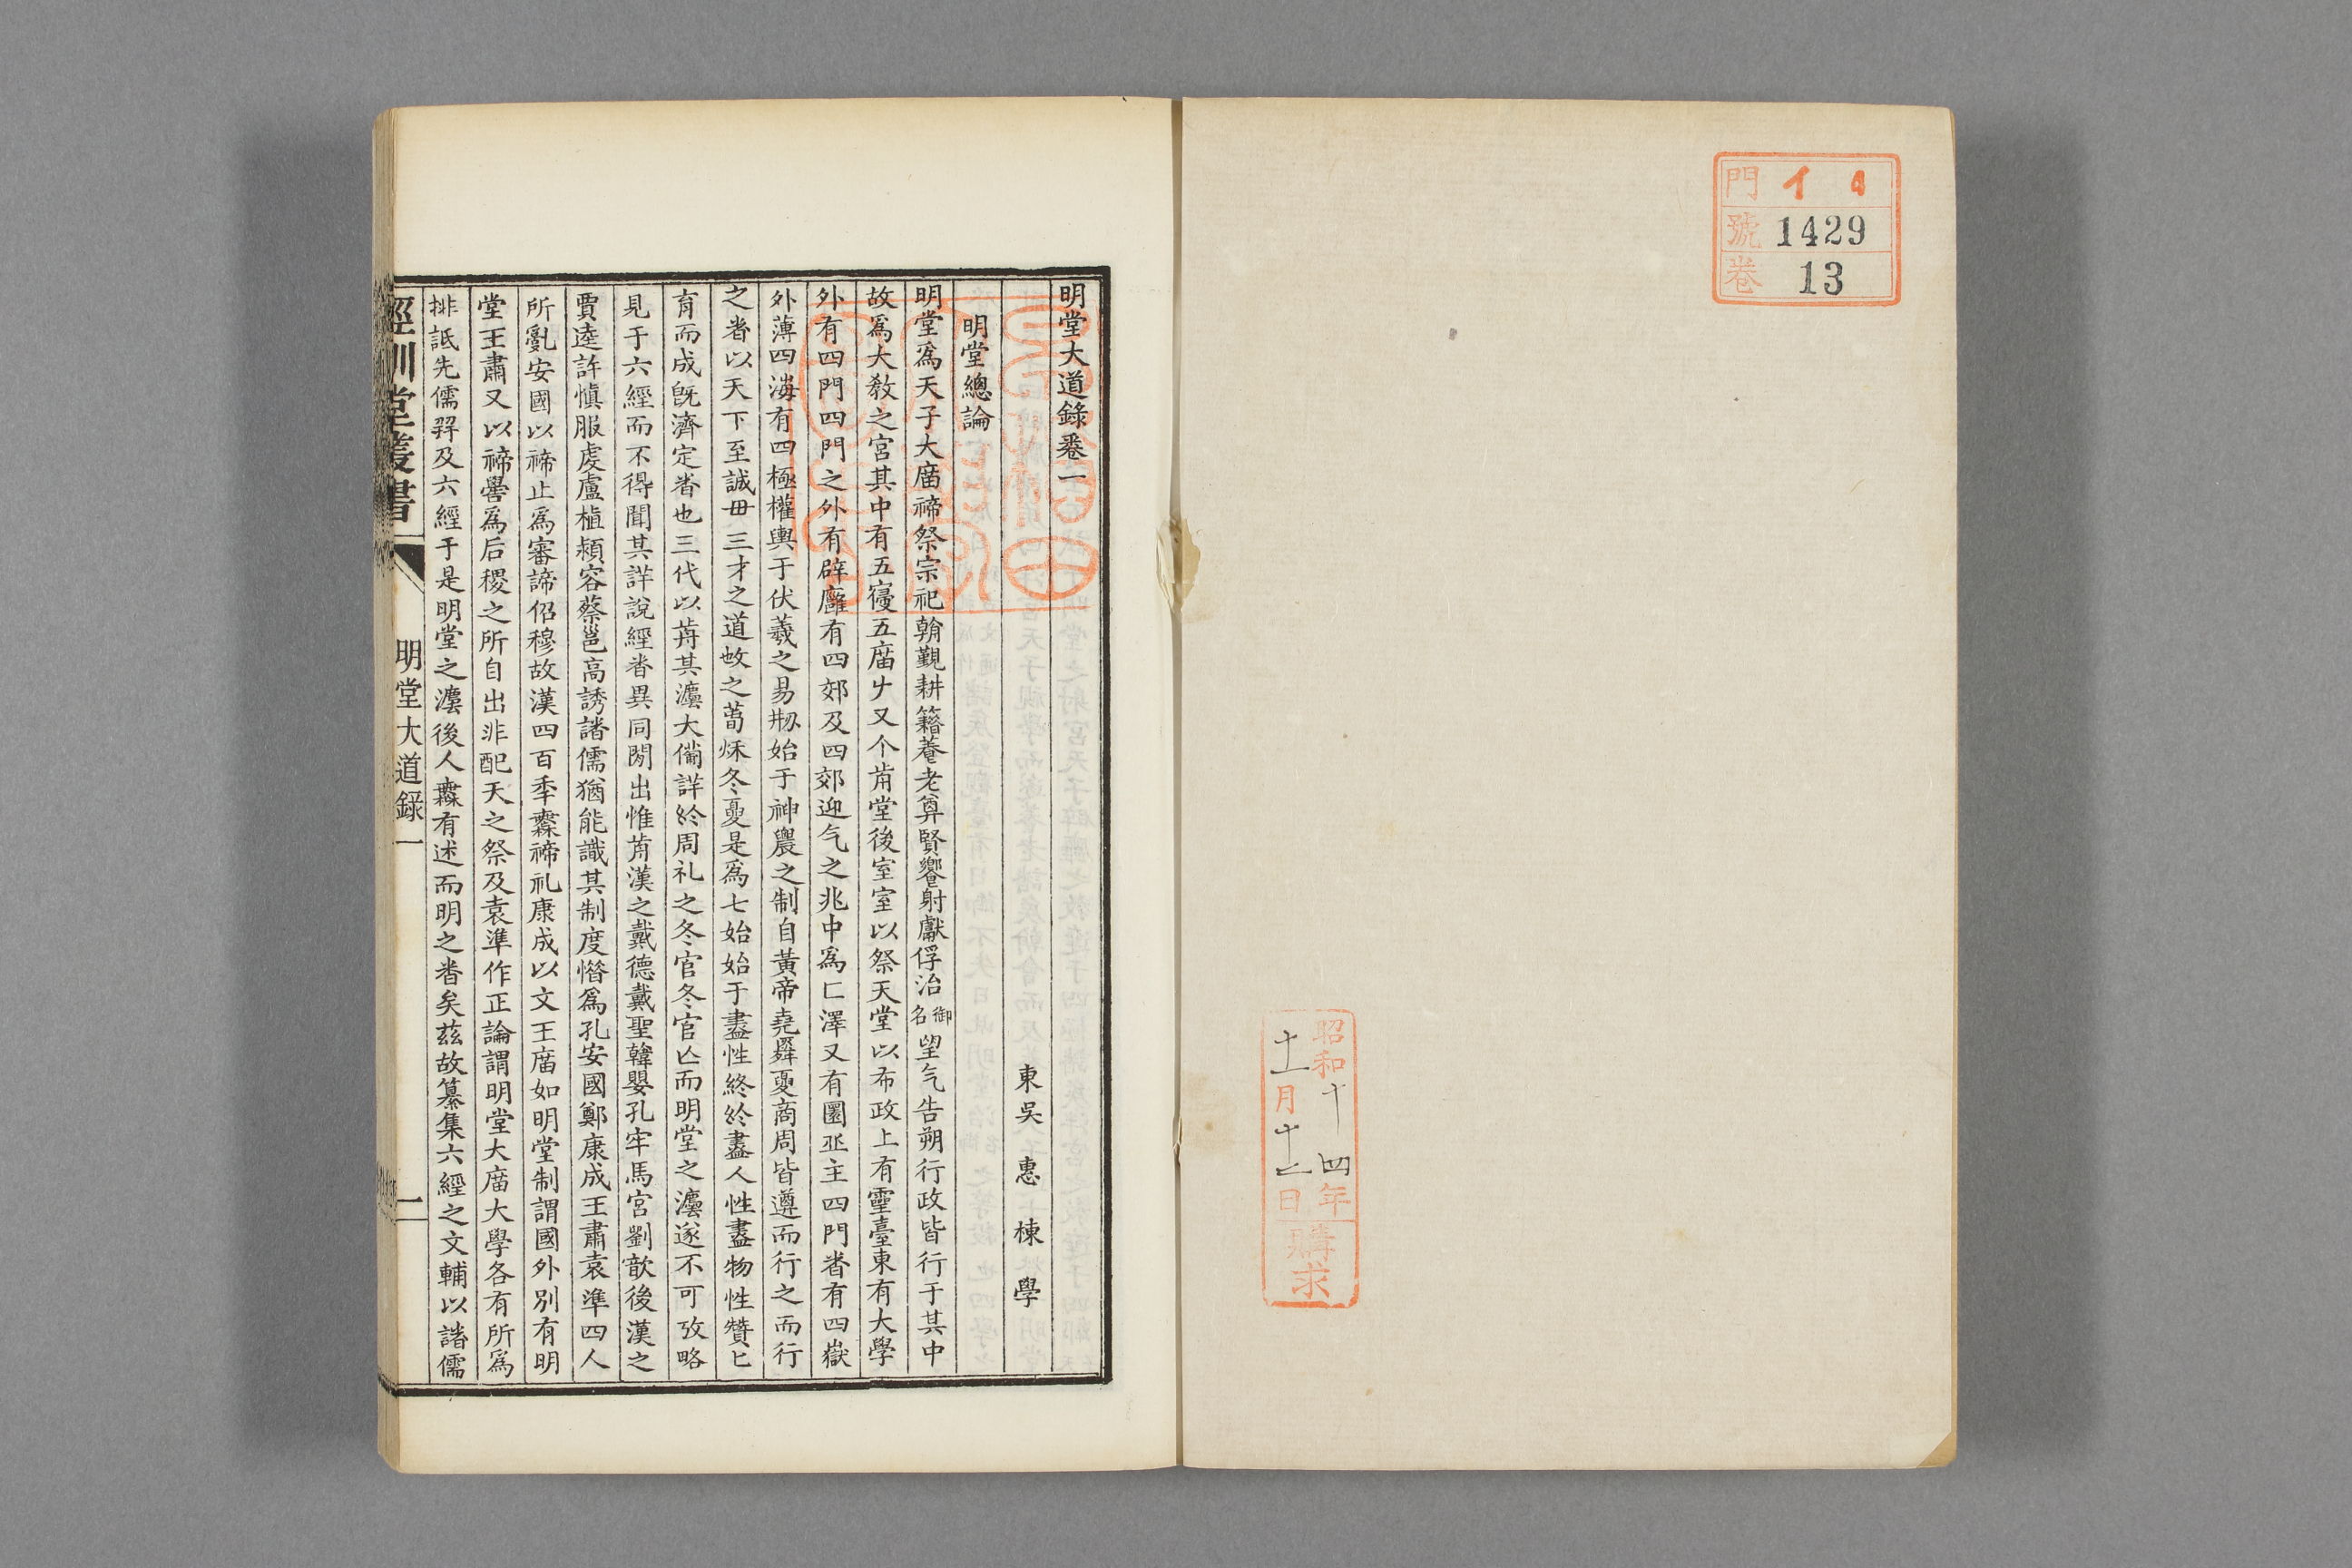 門 イ 4
號 1429
卷 13
昭和十四年
十一月十七日
購求
明堂大道錄卷一
東吳 惠 棟 學
明堂總論
明堂爲天子大廟禘祭宗祀朝覲耕籍養老尊賢饗射獻俘治御名望气告朔行政皆行于其中
故爲大敎之宮其中有五寑五廟𠂇又个歬堂後室室以祭天堂以布政上有靈臺東有大學
外有四門四門之外有辟廱有四郊及四郊迎气之兆中爲匚澤又有圜丠主四門者有四嶽
外薄四海有四極權輿于伏羲之易𠛬始于神農之制自黃帝堯舜夏商周皆遵而行之而行
之者以天下至誠毌三才之道㪅之萅秌冬夏是爲七始始于盡性終於盡人性盡物性贊匕
育而成旣濟定者也三代以歬其灋大備詳於周礼之冬官冬官亾而明堂之灋遂不可攷略
見于六經而不得聞其詳說經者異同閒出惟歬漢之戴德戴聖韓嬰孔牢馬宮劉歆後漢之
賈逵許愼服虔盧植潁容蔡邕高誘諸儒猶能識其制度惜爲孔安國鄭康成王肅袁準四人
所亂安國以禘止爲審諦佋穆故漢四百秊無禘礼康成以文王廟如明堂制謂國外別有明
堂王肅又以禘嚳爲后稷之所自出非配天之祭及袁準作正論謂明堂大廟大學各有所爲
排詆先儒幷及六經于是明堂之灋後人無有述而明之者矣茲故纂集六經之文輔以諸儒
經訓堂叢書
明堂大道錄一
一